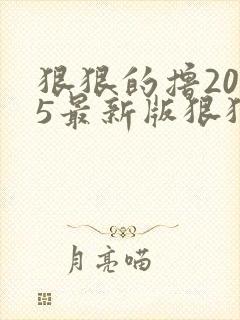 狠狠的撸20
5最新版狠狠
月亮喵